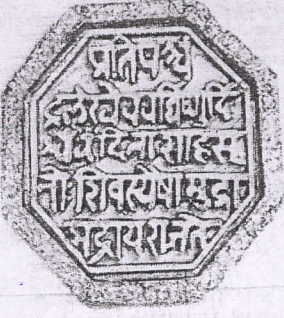 प्रतिपच्चं
द्रलेखेववर्धिष्णुर्वि
श्ववंदिता साहसू
नोः शिवस्यैषा मुद्रा
भद्राय राजते